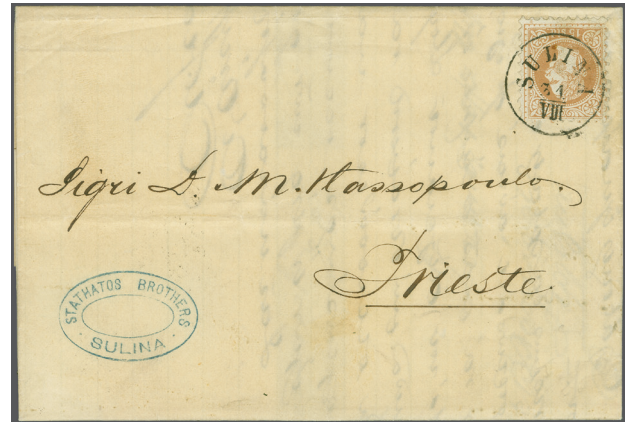 SULINA
31
VIII
Sigri D. M. Hassopoulo.
Trieste
STATHATOS BROTHERS
SULINA